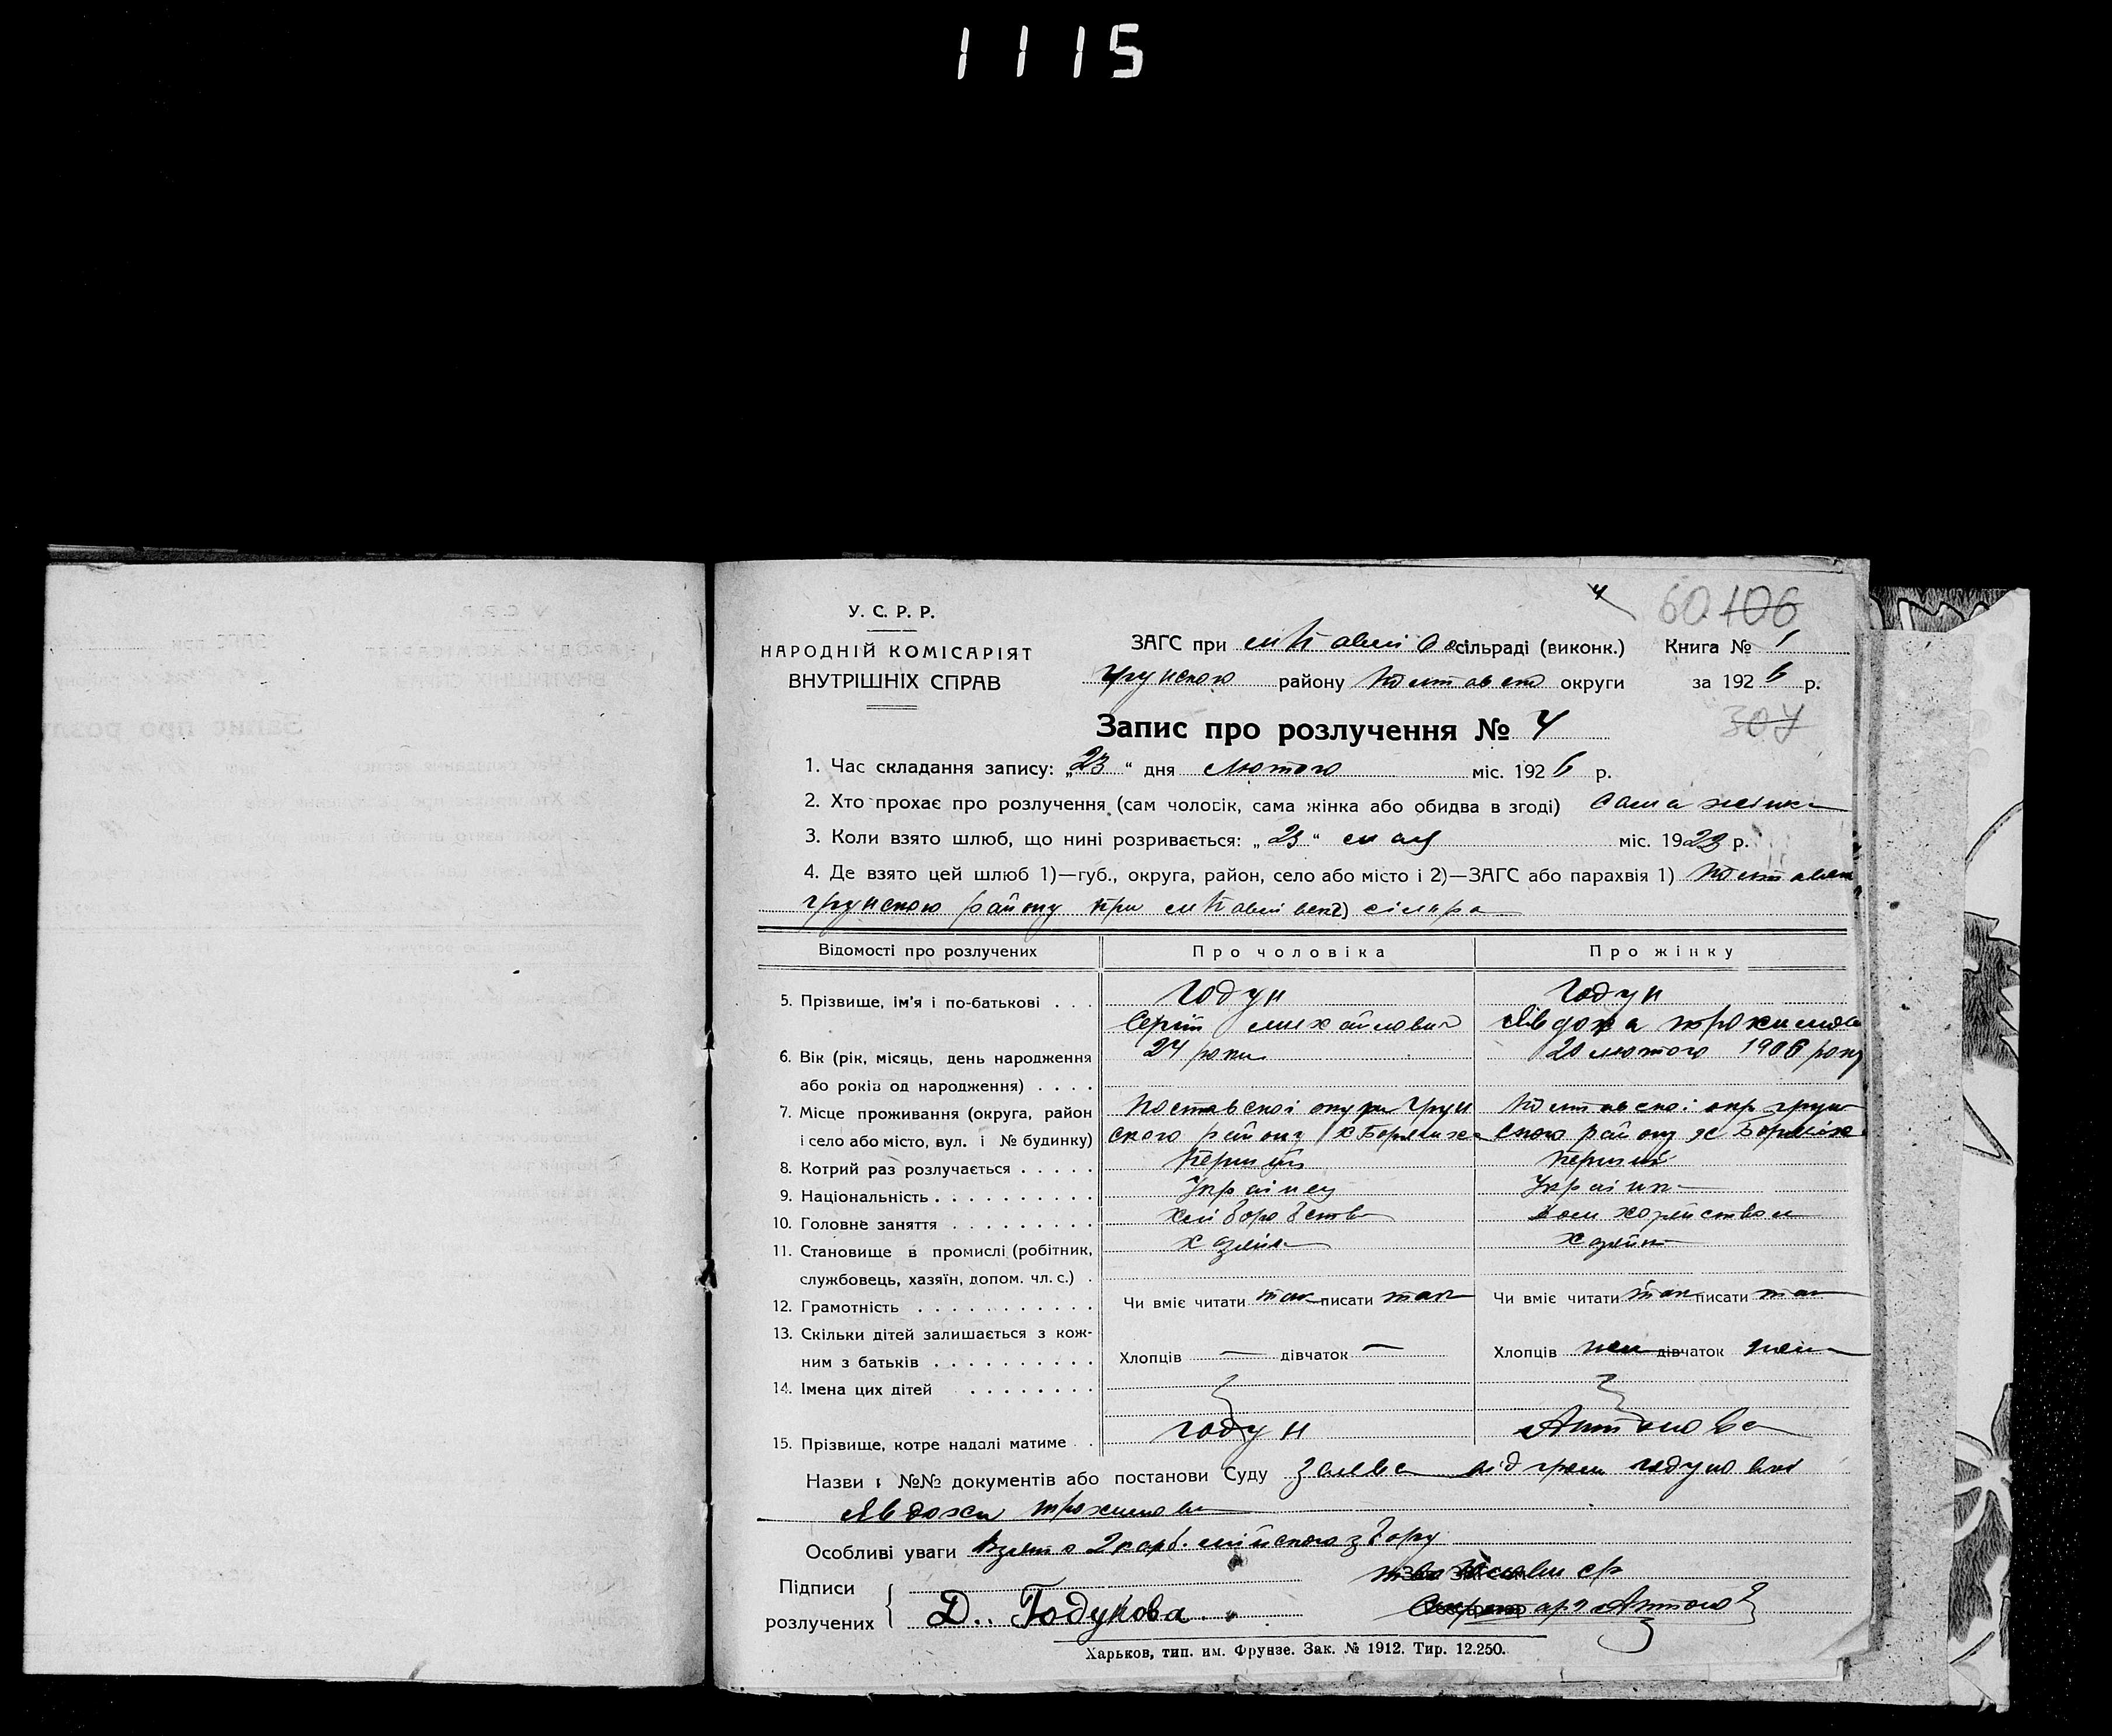 1115
4
60 106
У. С. Р. Р.
НАРОДНІЙ КОМІСАРІЯТ
ВНУТРІШНІХ СПРАВ
ЗАГС при сільраді (виконк.) Книга № 1
Грунского району Полтавсько округи за 1926 р.
Запис про розлучення № 4
307
1. Час складання запису: „23“ дня Лютого міс. 1926 р.
2. Хто прохає про розлучення (сам чоловік, сама жінка або обидва в згоді) Сама жінка
3. Коли взято шлюб, що нині розривається: „23“ мая міс. 1923 р.
4. Де взято цей шлюб 1)—губ., округа, район, село або місто і 2)—ЗАГС або парахвія 1)
Грунского району при сільра
Відомості про розлучених Про чоловіка Про жінку
5. Прізвище, ім'я і по-батькові . . . Годун Годун
Сергій Михайлович Явдоха Трохимов
6. Вік (рік, місяць, день народження 24 роки 20 лютого 1906 року
або років од народження) . . . .
7. Місце проживання (округа, район Полтавскоі округи Грун Полтавскоі окр Грун
і село або місто, вул. і № будинку) ского району х ского району х
8. Котрий раз розлучається . . . . . Перший Перший
9. Національність . . . . . . . . . . Украінец Украінка
10. Головне заняття . . . . . . . . . Хліборобство Дом хозяйством
11. Становище в промислі (робітник,
службовець, хазяїн, допом. чл. с.) .
12. Грамотність . . . . . . . . . . . Чи вміє читати так писати так Чи вміє читати так писати так
13. Скільки дітей залишається з кож-
ним з батьків . . . . . . . . . . Хлопців — дівчаток — Хлопців нема дівчаток нема
14. Імена цих дітей . . . . . . . .
15. Прізвище, котре надалі матиме . . Годун Антонова
Назви і №№ документів або постанови Суду Заява від гром Годуновоі
Явдохи Трохимов
Особливі уваги Взято 2 карб. збору
Підписи
розлучених { Д. Годунова.
Харьков, тип. им. Фрунзе. Зак. № 1912. Тир. 12.250.